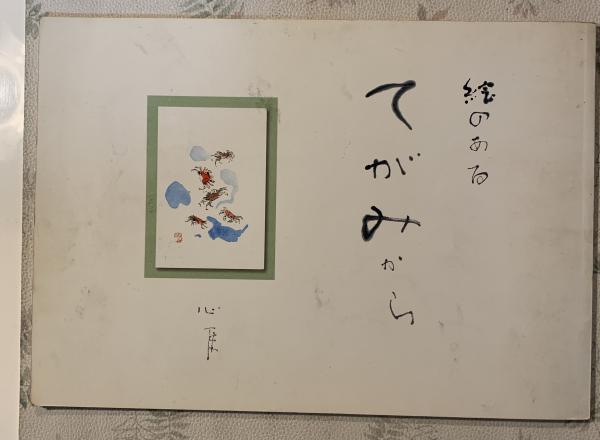 絵のある
てがみから